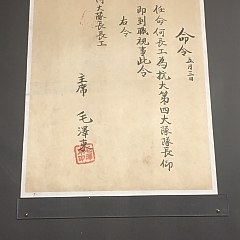 命令 五月三日
任命何長工為抗大第四大隊隊長仰
即到職視事此令
右令
何大隊長長工
主席 毛澤東